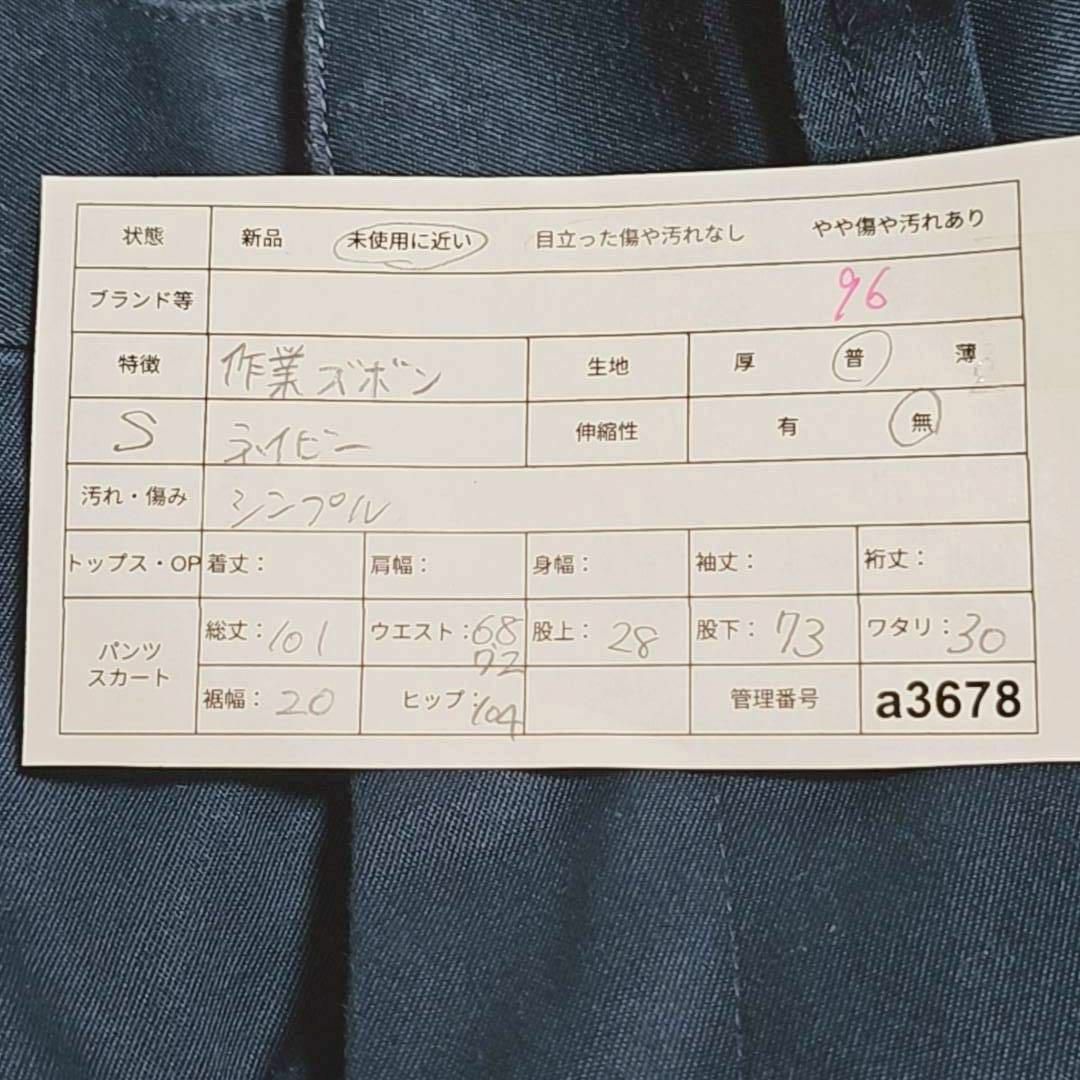 状態 新品 未使用に近い 目立った傷や汚れなし やや傷や汚れあり
ブランド等 96
特徴 作業ズボン 生地 厚 普 薄
S ネイビー 伸縮性 有 無
汚れ・傷み シンプル
トップス・OP 着丈： 肩幅： 身幅： 袖丈： 裄丈：
パンツ スカート
総丈：101 ウエスト：68 72 股上：28 股下：73 ワタリ：30
裾幅：20 ヒップ：104 管理番号 a3678